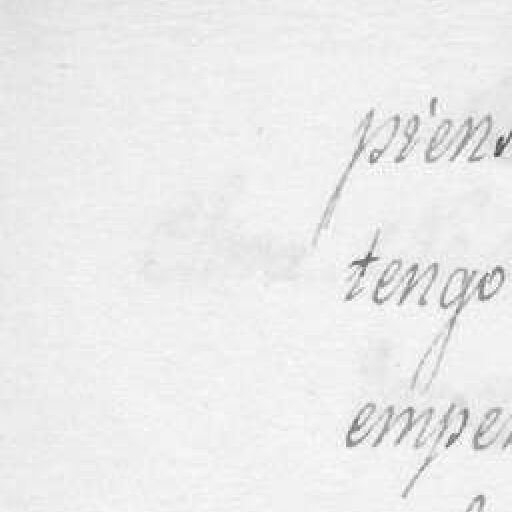 pien
tengo
empe